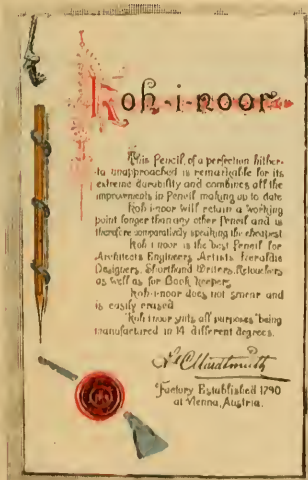 Koh-i-noor
This Pencil, of a perfection hither-
to unapproached is remarkable for its
extreme durability and combines all the
improvements in Pencil making up to date
Koh-i-noor will retain a working
point longer than any other Pencil and is
therefore comparatively speaking the cheapest.
Koh i noor is the best Pencil for
Architects Engineers Artists Heraldic
Designers, Shorthand Writers, Retouchers
as well as for Book keepers
Koh-i-noor does not smear and
is easily erased
"Koh i noor suits all purposes" being
manufactured in 14 different degrees.
L&C Hardtmuth
Factory Established 1790
at Vienna, Austria.